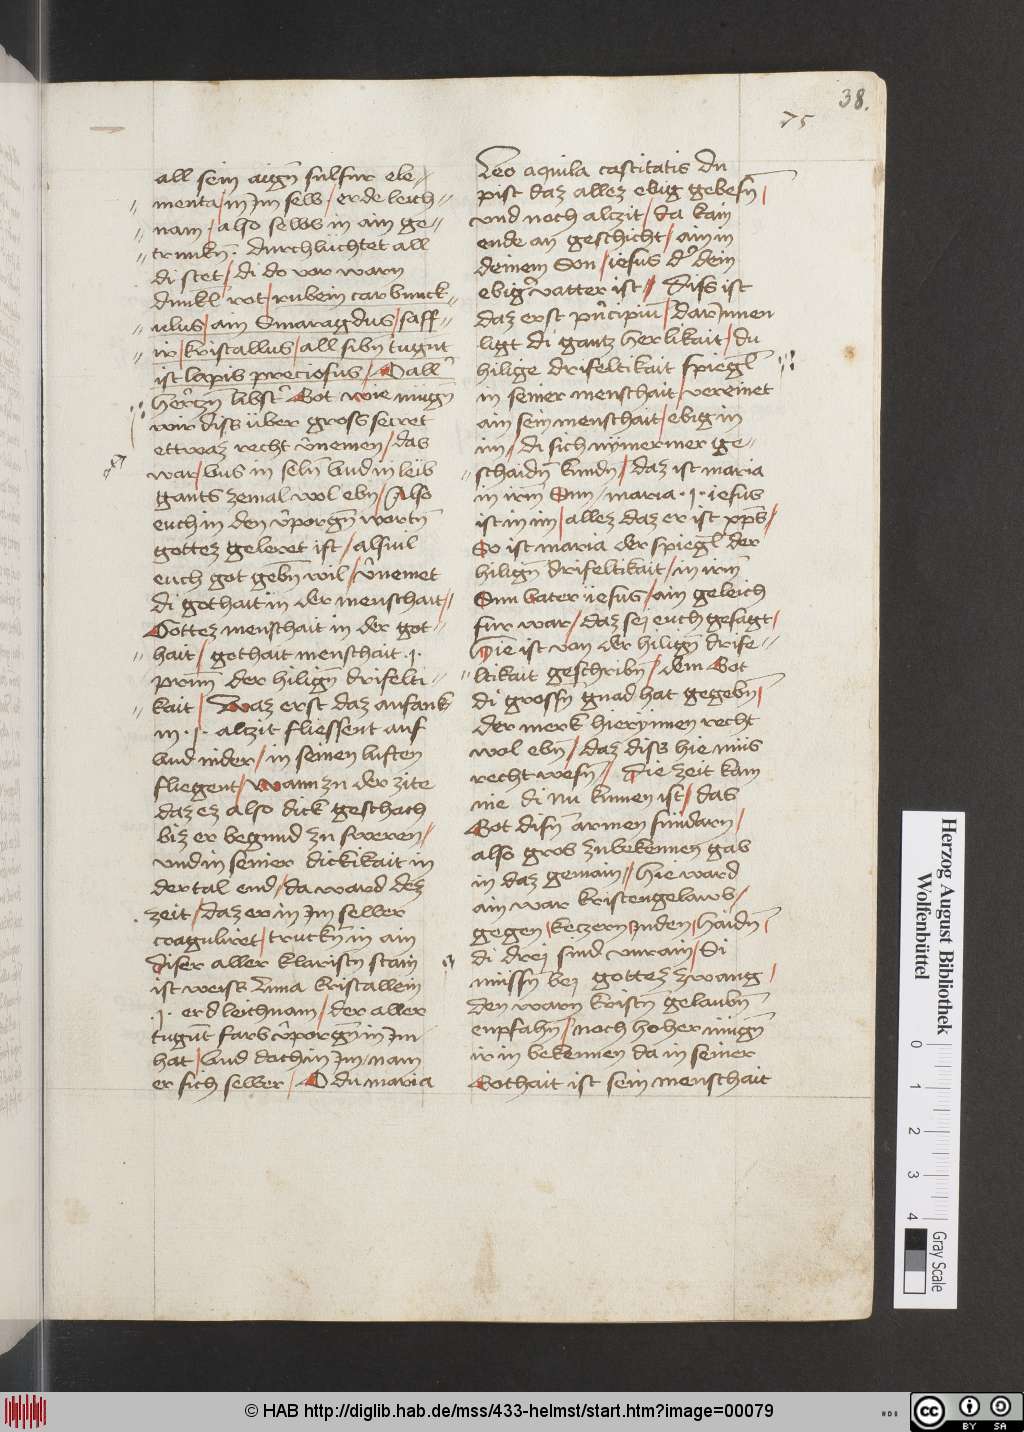 38.
75
all sein aigñ sulfur ele-
menta / in Im selb / erde leich-
nam / also selbs in ain ge-
trunkñ. durchlüchtet all
di stet / di do vor warn
dunkl rot / rubein carbunck-
ulus / ain Smaragdus / saff-
ir / kristallus / all sibñ tugnt
ist lapis preciosus / O all'
hertzñ libst' Got wie mügñ
wir diss über gross secret
ettwaz recht v'nemen / das
war / vns in seln vnd in leib
gants zemal wol ebñ / Also
euch in den v'porgñ wortñ
gottez geleret ist / alsuil
euch got gebñ wil / v'nemet
di gothait in der menschait /
Gottez menschait in der got-
hait / gothait menschait .i.
primũ der hiligñ drifelti-
kait / Waz erst daz anfank
in .i. altzit fliessent auf
vnd nider / in seinen luften
fliegent / wann zu der zite
daz ez also dick geschach
biz er begund zu sweren /
vnd in seiner dickikait in
der tal end / da ward dez
zeit / daz er in Im selber
coaguliret / truckñ in ain
Diser aller klaristñ stain
ist weiss Luna kristallein
.i. erdleichnam / der aller
tugñt farb v'porgñ in Im
hat / vnd doch in Im / nam
er sich selber / O du maria
Leo aquila castitatis du
pist daz allez ebig gebesñ /
vnd noch altzit / da kain
ende an geschicht / ain in
deinem Son / iesus d' dein
ebig' vatter ist // Diss ist
daz erst principiũ / Dar Innen
ligt di gantz herlikait / du
hilige drifeltikait spiegl
in seiner menschait vereinet
ain sein menschait / ebig in
im / di sich nymermer ge-
schaidñ kundñ / daz ist maria
in irm Sun / maria .i. iesus
ist in im / allez daz er ist xp̃s //
So ist maria der spiegl der
hiligñ drifeltikait / in irm
Sun vater iesus / ain geleich
fur war / daz sej euch gesagt /
Hie ist von der hiligñ drife-
ltikait geschribñ / dem Got
di grossñ gnad hat gegebñ /
der merk hierynnen recht
wol ebñ / daz diss hie mus
recht wesñ // Die zeit kam
nie di nu kumen ist / das
Got disñ armen sundarn /
also grob zubekennen gab
in daz gemain // hie ward
ain war kristengelawb /
gegen / keczern Inden / haidñ /
di drej sind vnrain / Si
missñ bej gottez zwang /
den warn kristñ gelaubñ
enpfahñ / noch hoher mügñ
ir in bekennen da in seiner
Gothait ist sein menschait
Herzog August Bibliothek
Wolfenbüttel
0 1 2 3 4
Gray Scale
© HAB http://diglib.hab.de/mss/433-helmst/start.htm?image=00079
cc BY SA